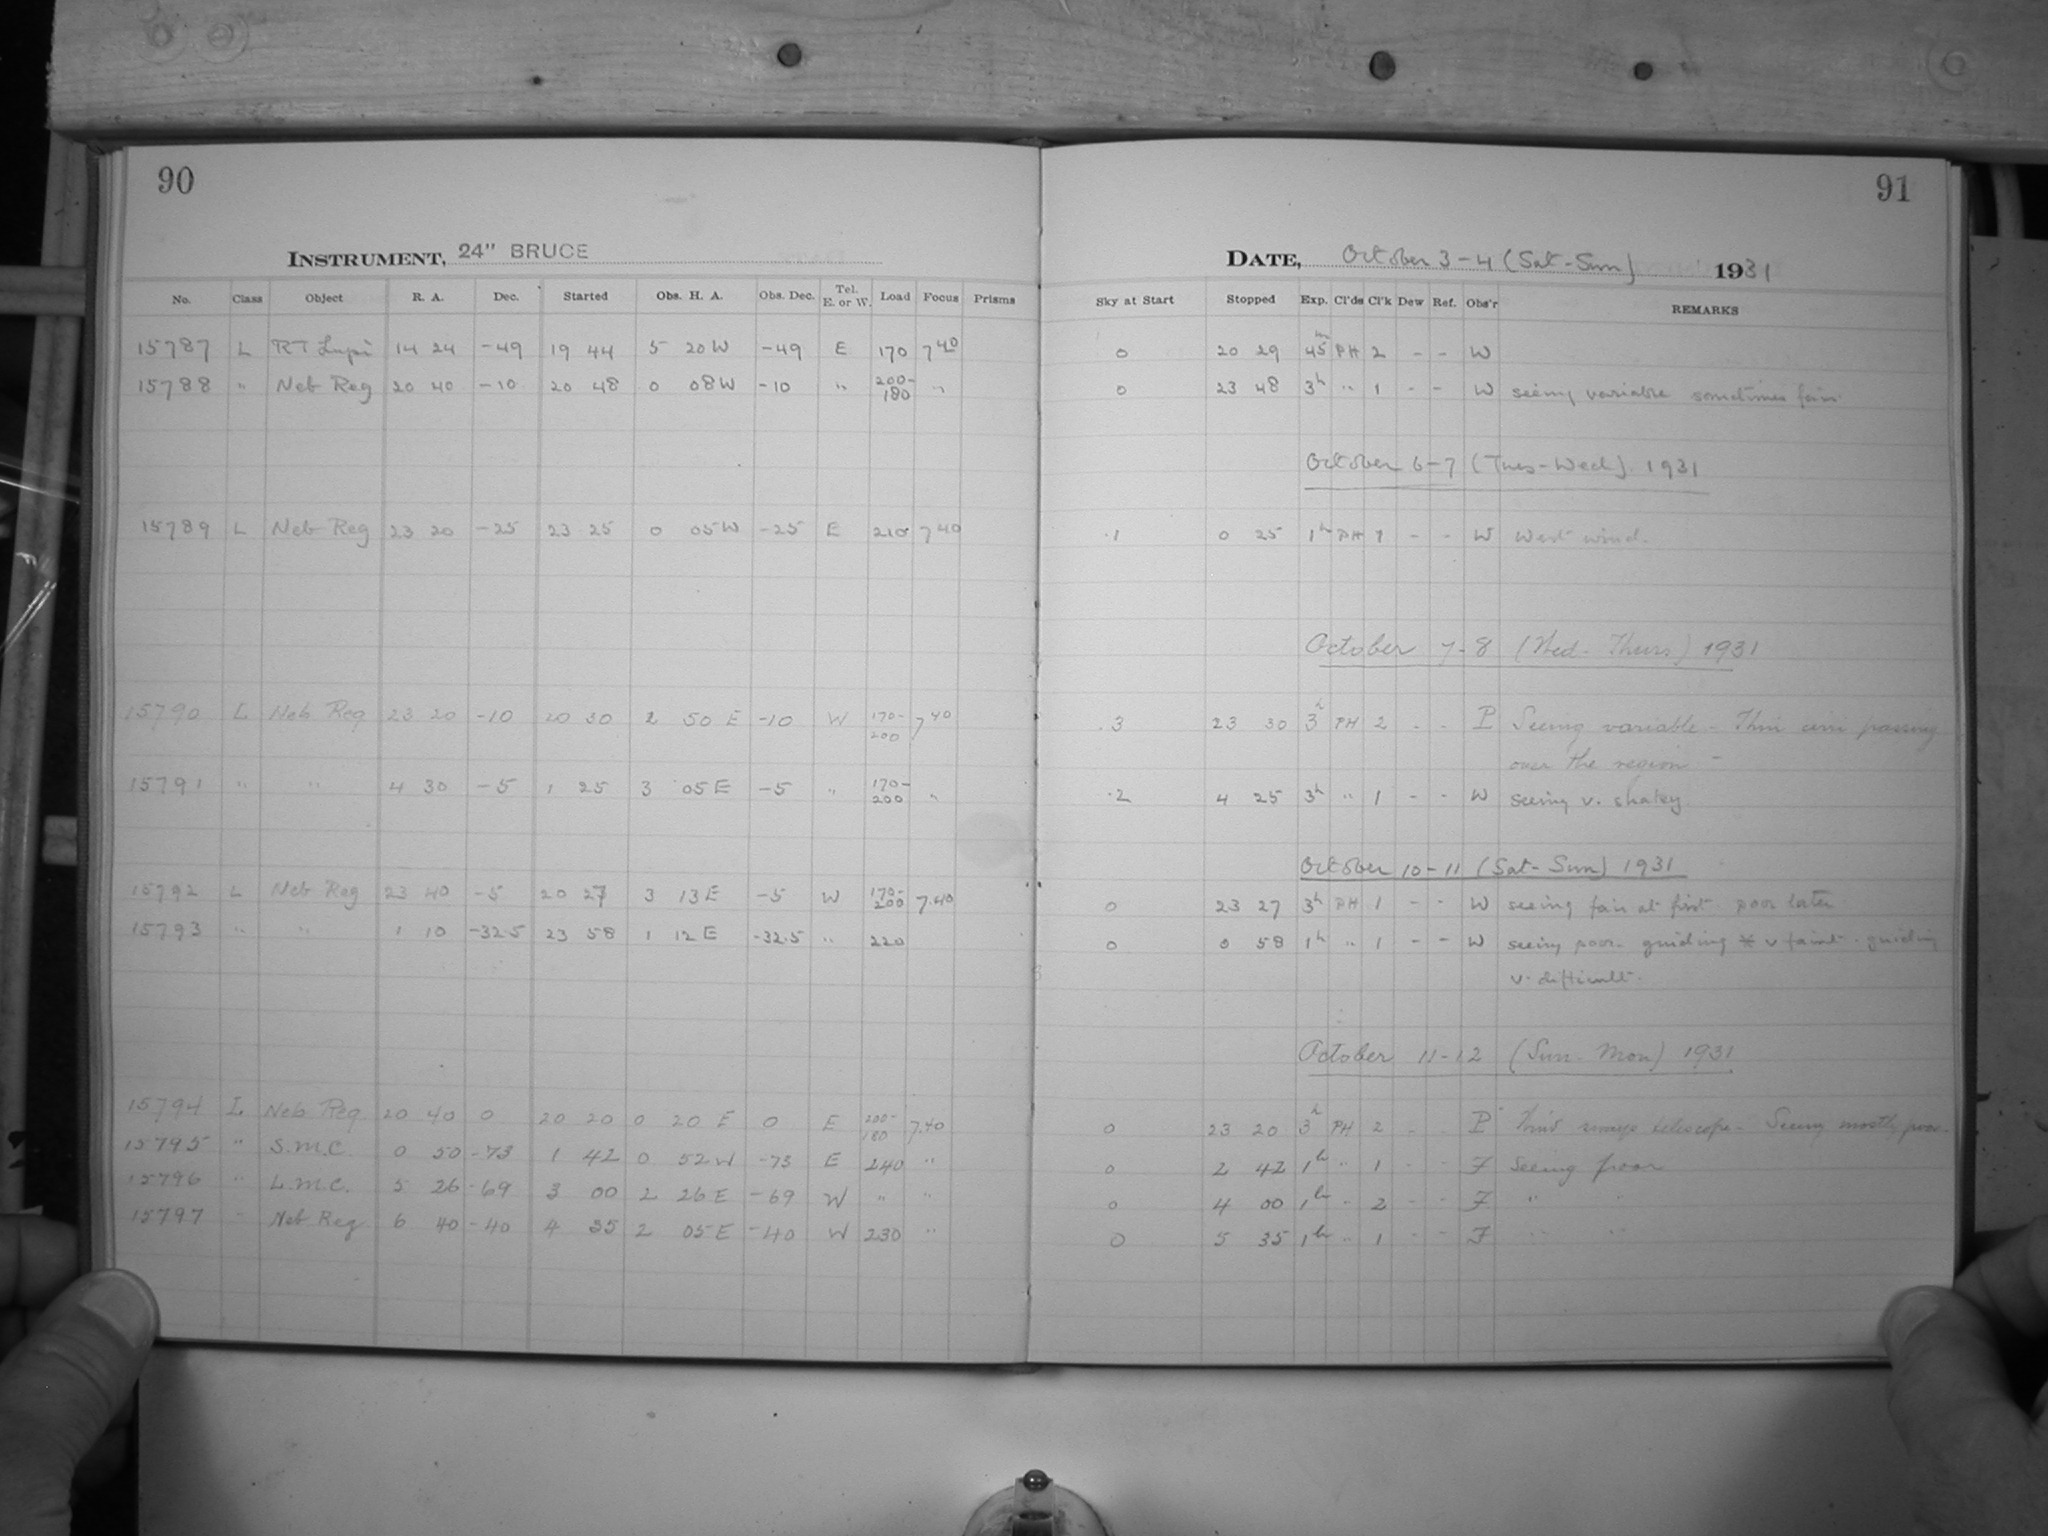 90
INSTRUMENT, 24" BRUCE
No. Class Object R. A. Dec. Started Obs. H. A. Obs. Dec. Tel. E. or W. Load Focus Prisms
15787 L RT Lupi 14 24 -49 19 44 5 20 W -49 E 170 7 40
15788 " Neb Reg 20 40 -10 20 48 0 08 W -10 " 200-180 "
15789 L Neb Reg 23 20 -25 23 25 0 05 W -25 E 210 7 40
15790 L Neb Reg 23 20 -10 20 30 2 50 E -10 W 170-200 7 40
15791 " " 4 30 -5 1 25 3 05 E -5 " 170-200 "
15792 L Neb Reg 23 40 -5 20 27 3 13 E -5 W 170-200 7.40
15793 " " 1 10 -32.5 23 58 1 12 E -32.5 " 220
15794 L Neb Reg 20 40 0 20 20 0 20 E 0 E 200-180 7.40
15795 " S.M.C. 0 50 -73 1 42 0 52 W -73 E 240 "
15796 " L.M.C. 5 26 -69 3 00 2 26 E -69 W " "
15797 " Neb Reg 6 40 -40 4 35 2 05 E -40 W 230 "
91
DATE, October 3-4 (Sat-Sun) 1931
Sky at Start Stopped Exp. Cl'ds Cl'k Dew Ref. Obs'r REMARKS
0 20 29 45m PH 2 - - W
0 23 48 3h " 1 - - W seeing variable sometimes fair
October 6-7 (Tues-Wed). 1931
.1 0 25 1h PH 1 - - W West wind.
October 7-8 (Wed-Thurs) 1931
.3 23 30 3h PH 2 - - P Seeing variable - Thin cirri passing
over the region -
.2 4 25 3h " 1 - - W seeing v. shakey
October 10-11 (Sat-Sun) 1931
0 23 27 3h PH 1 - - W seeing fair at first. poor later
0 0 58 1h " 1 - - W seeing poor. guiding * v faint. guiding
v. difficult.
October 11-12 (Sun-Mon) 1931
0 23 20 3h PH 2 - - P telescope - Seeing mostly poor
0 2 42 1h " 1 - - F seeing poor
0 4 00 1h " 2 - - F " "
0 5 35 1h " 1 - - F " "